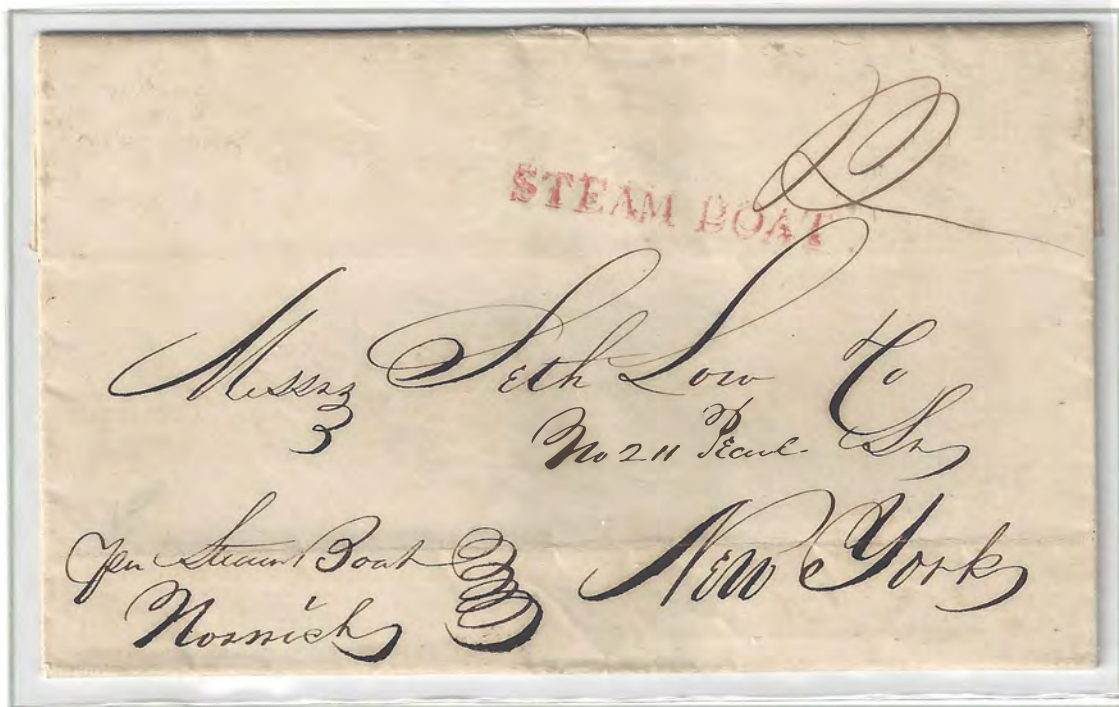 STEAM BOAT
Messrs Seth Low & Co
No 211 Pearl St
New York
Per Steam Boat
Norwich